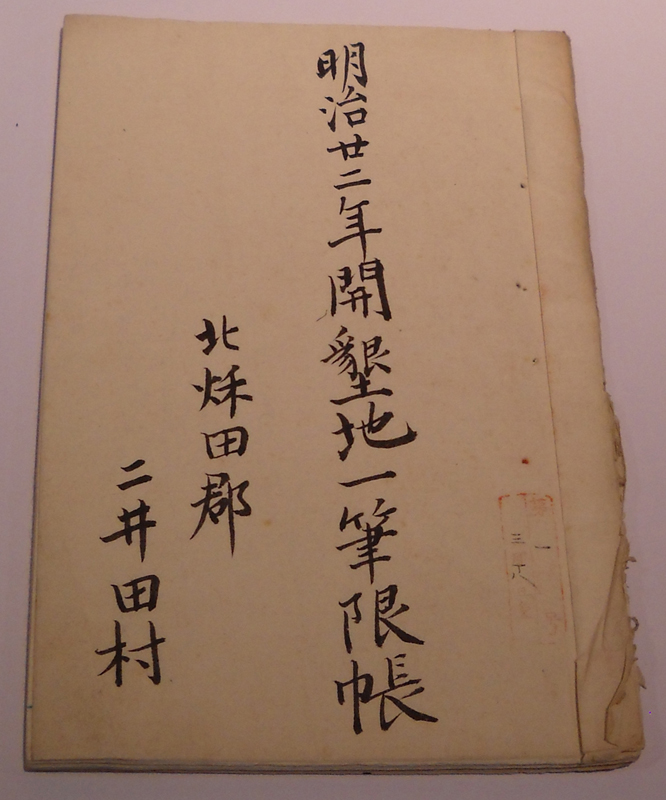 明治廿二年開墾地一筆限帳
北秌田郡
二井田村